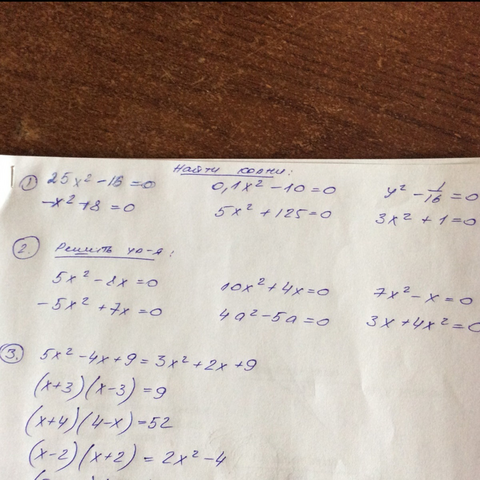 Найти корни:
① 25x² - 16 = 0 0,1x² - 10 = 0 y² - 1/16 = 0
-x² + 8 = 0 5x² + 125 = 0 3x² + 1 = 0
② Решить ур-я:
5x² - 8x = 0 10x² + 4x = 0 7x² - x = 0
-5x² + 7x = 0 4a² - 5a = 0 3x + 4x² = 0
③ 5x² - 4x + 9 = 3x² + 2x + 9
(x+3)(x-3) = 9
(x+4)(4-x) = 52
(x-2)(x+2) = 2x² - 4